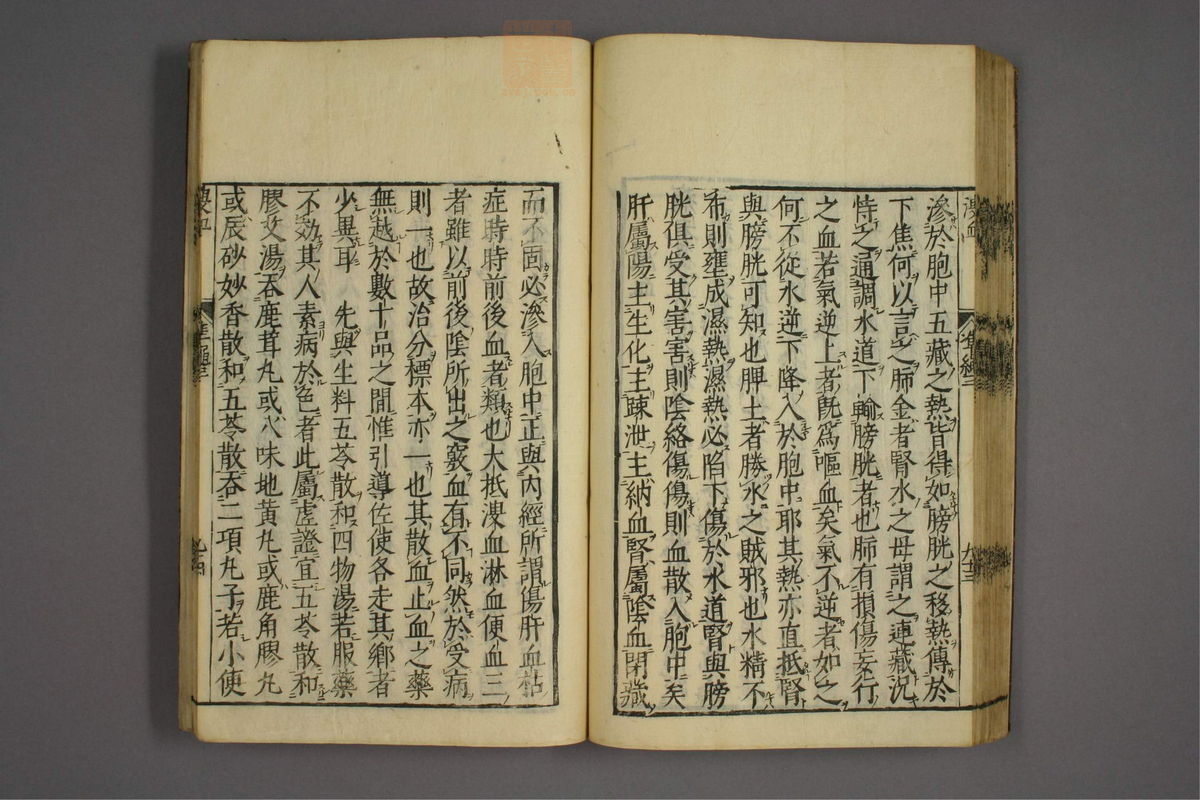 滲於胞中五藏之熱皆得如膀胱之移熱傳於
下焦何以言之肺金者腎水之母謂之連藏況
恃之通調水道下輸膀胱者也肺有損傷妄行
之血若氣逆上者既爲嘔血矣氣不逆者如之
何不從水逆下降入於胞中耶其熱亦直抵腎
與膀胱可知也脾土者勝水之賊邪也水精不
布則壅成濕熱濕熱必陷下傷於水道腎與膀
胱俱受其害害則陰絡傷傷則血散入胞中矣
肝屬陽主生化主疎泄主納血腎屬陰血閉藏
而不固必滲入胞中正與內經所謂傷肝血枯
症時時前後血者類也大抵溲血淋血便血三
者雖以前後陰所出之竅血有不同然於受病
則一也故治分標本亦一也其散血止血之藥
無越於數十品之間惟引導佐使各走其鄉者
少異耳 先與生料五苓散和四物湯若服藥
不效其人素病於色者此屬虛證宜五苓散和
膠艾湯吞鹿茸丸或八味地黄丸或鹿角膠丸
或辰砂妙香散和五苓散吞二項丸子若小便